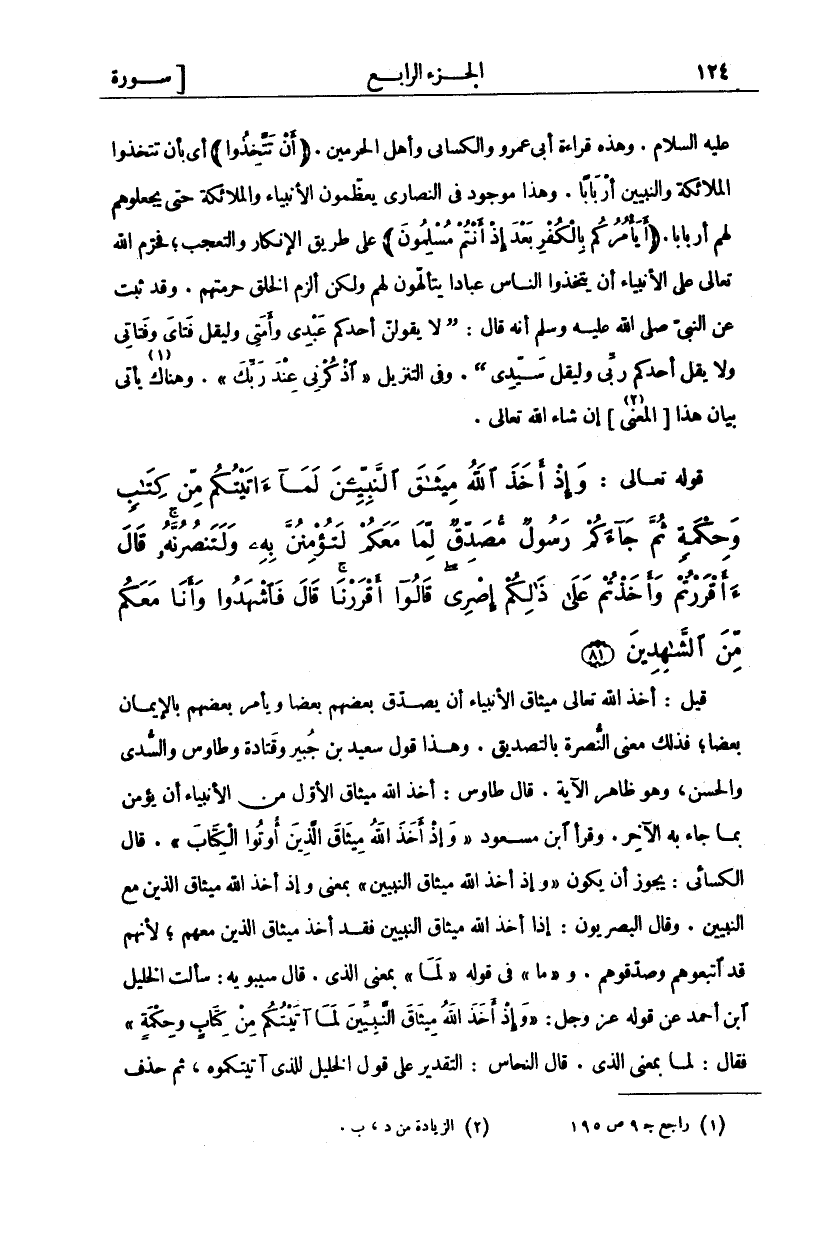 ١٢٤ الجزء الرابع [ ســورة
عليه السلام . وهذه قراءة أبى عمرو والكسائى وأهل الحرمين . ﴿أَنْ تَتَّخِذُوا﴾ أى بأن تتخذوا
الملائكة والنبيين أَرْبَابًا . وهذا موجود فى النصارى يعظّمون الأنبياء والملائكة حتى يجعلوهم
لهم أربابا. ﴿أَيَأْمُرُكُم بِالْكُفْرِ بَعْدَ إِذْ أَنْتُمْ مُسْلِمُونَ﴾ على طريق الإنكار والتعجب؛ فحرّم الله
تعالى على الأنبياء أن يتخذوا الناس عبادا يتألّهون لهم ولكن ألزم الخلق حرمتهم . وقد ثبت
عن النبىّ صلى الله عليه وسلم أنه قال : ” لا يقولنّ أحدكم عَبْدِى وأَمَتِى وليقل فَتَاىَ وفَتَاتِى
ولا يقل أحدكم ربِّى وليقل سَيِّدِى “ . وفى التنزيل « ٱذْكُرْنِى عِنْدَ رَبِّكَ (١) » . وهناك يأتى
بيان هذا [ المعنى (٢) ] إن شاء الله تعالى .
قوله تعـالى : وَإِذْ أَخَذَ ٱللَّهُ مِيثَٰقَ ٱلنَّبِيِّـۧنَ لَمَآ ءَاتَيْتُكُم مِّن كِتَٰبٍ
وَحِكْمَةٍ ثُمَّ جَآءَكُمْ رَسُولٌ مُّصَدِّقٌ لِّمَا مَعَكُمْ لَتُؤْمِنُنَّ بِهِۦ وَلَتَنصُرُنَّهُۥ ۚ قَالَ
ءَأَقْرَرْتُمْ وَأَخَذْتُمْ عَلَىٰ ذَٰلِكُمْ إِصْرِى ۖ قَالُوٓا أَقْرَرْنَا ۚ قَالَ فَٱشْهَدُوا وَأَنَا۠ مَعَكُم
مِّنَ ٱلشَّٰهِدِينَ ﴿٨١﴾
قيل : أخذ الله تعالى ميثاق الأنبياء أن يصـدّق بعضهم بعضا ويأمر بعضهم بالإيمـان
بعضا؛ فذلك معنى النُّصرة بالتصديق . وهـذا قول سعيد بن جُبير وقتادة وطاوس والسُّدى
والحسن، وهو ظاهر الآية . قال طاوس : أخذ الله ميثاق الأوّل من الأنبياء أن يؤمن
بمـا جاء به الآخِر. وقرأ ٱبن مسعود « وَإِذْ أَخَذَ اللهُ مِيثَاقَ الَّذِينَ أُوتُوا الْكِتَابَ » . قال
الكسائى : يجوز أن يكون «وإذ أخذ الله ميثاق النبيين» بمعنى وإذ أخذ الله ميثاق الذين مع
النبيين . وقال البصريون : إذا أخذ الله ميثاق النبيين فقـد أخذ ميثاق الذين معهم ؛ لأنهم
قد ٱتبعوهم وصدّقوهم . و «ما» فى قوله « لَمَا » بمعنى الذى . قال سيبويه : سألت الخليل
ٱبن أحمد عن قوله عز وجل : «وَإِذْ أَخَذَ اللهُ مِيثَاقَ النَّبِيِّينَ لَمَا آتَيْتُكُمْ مِنْ كِتَابٍ وحِكْمَةٍ »
فقال : لمـا بمعنى الذى . قال النحاس : التقدير على قول الخليل للذى آتيتكموه ، ثم حذف
(١) راجع جـ ٩ ص ١٩٥ (٢) الزيادة من د ، ب .